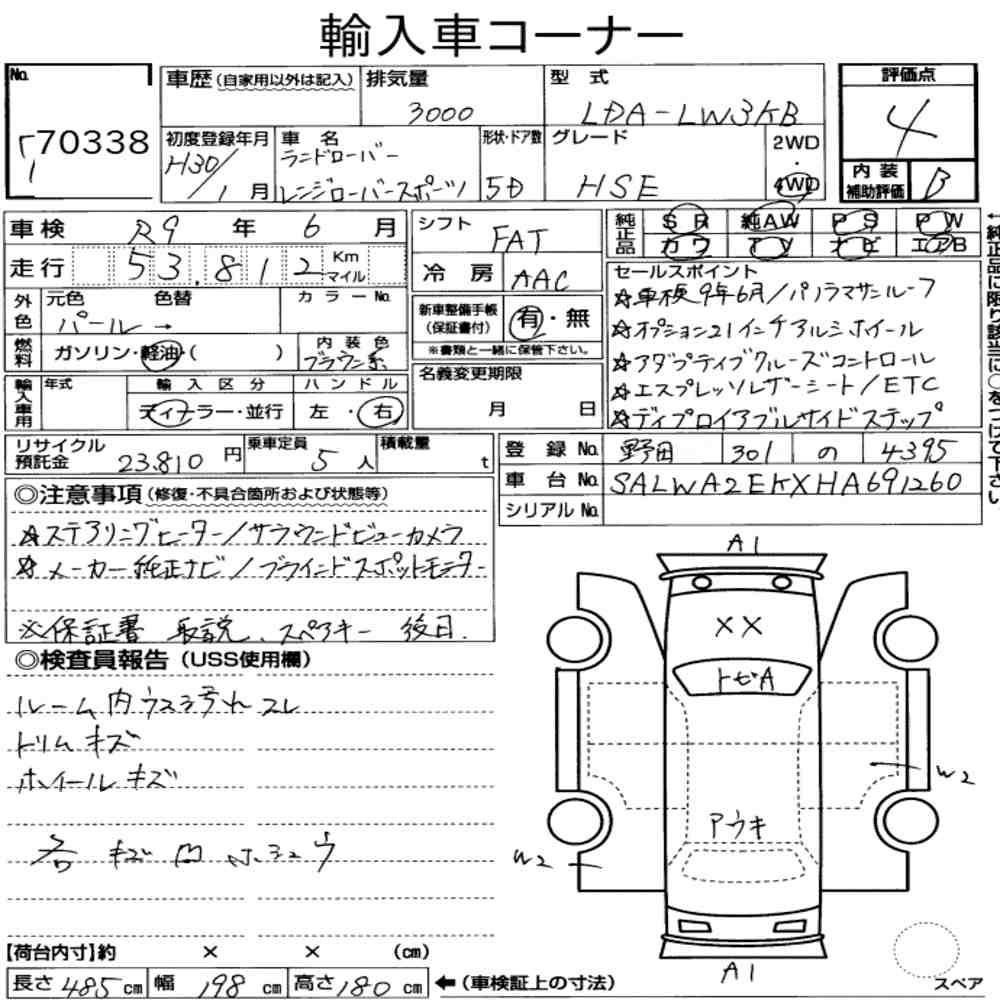 輸入車コーナー
No.
70338
車歴 (自家用以外は記入)
排気量
3000
型 式
LDA-LW3KB
評価点
4
初度登録年月
H30/1月
車 名
ランドローバー
レンジローバースポーツ
形状・ドア数
5D
グレード
HSE
2WD
・
4WD
内 装
補助評価
B
車検 R9 年 6 月
走行 53,812 Km マイル
シフト
FAT
冷 房
AAC
純正品
SR 純AW PS PW
カワ TV ナビ エアB
外色
元色 色替
パール→
カラーNo.
燃料
ガソリン・軽油・( )
内 装 色
ブラウン系
新車整備手帳
(保証書付)
有・無
※書類と一緒に保管下さい。
輸入車用
年式
輸 入 区 分
ディーラー・並行
ハ ン ド ル
左 ・ 右
名義変更期限
月 日
セールスポイント
☆車検9年6月/パノラマサンルーフ
☆オプション21インチアルミホイール
☆アダプティブクルーズコントロール
☆エスプレッソレザーシート/ETC
☆ディプロイアブルサイドステップ
←純正品に限り該当に○をつけて下さい。
リサイクル
預託金
23,810 円
乗車定員
5人
積載量
t
登 録 No. 野田 301 の 4395
車 台 No. SALWA2EKXHA691260
シリアル No.
◎注意事項 (修復・不具合箇所および状態等)
☆ステアリングヒーター/サラウンドビューカメラ
☆メーカー純正ナビ/ブラインドスポットモニター
※保証書 取説、スペアキー 後日.
◎検査員報告 (USS使用欄)
ルーム内ウスヨゴレ スレ
トリムキズ
ホイールキズ
A1
XX
トビA
W2
アウキ
W2
A1
スペア
【荷台内寸】約 × × (cm)
長さ 485 cm 幅 198 cm 高さ 180 cm ←(車検証上の寸法)